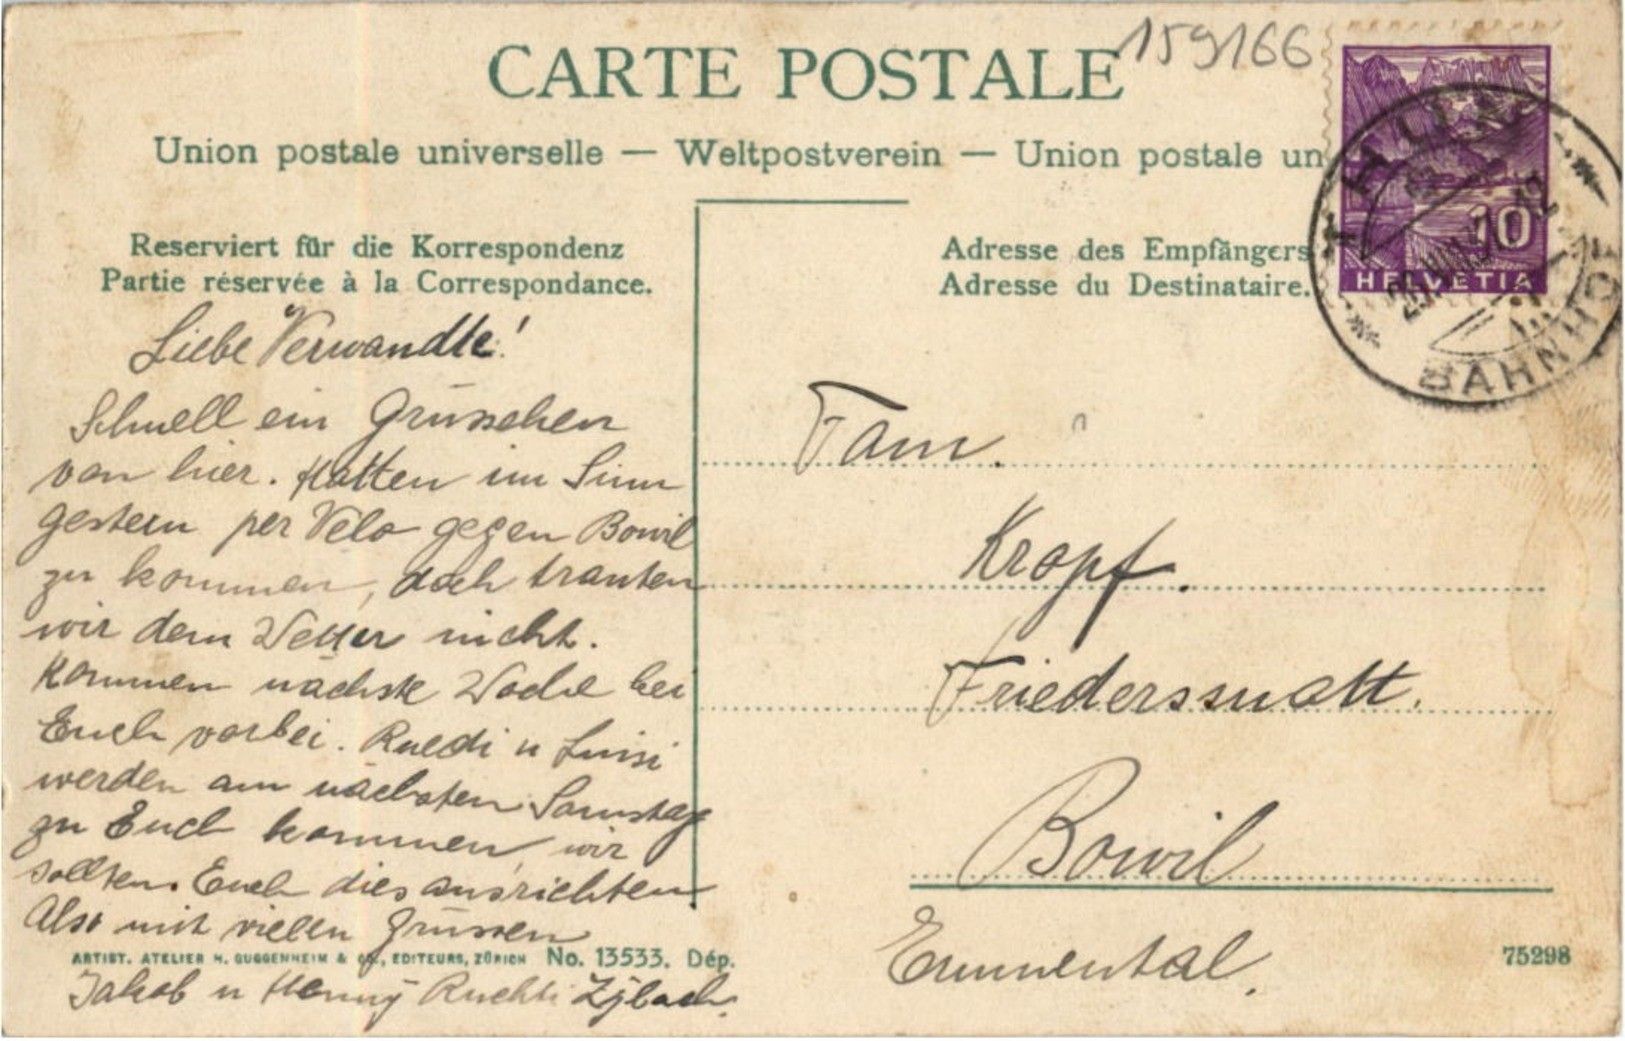 159166
CARTE POSTALE
Union postale universelle — Weltpostverein — Union postale un
Reserviert für die Korrespondenz
Partie réservée à la Correspondance.
Adresse des Empfängers
Adresse du Destinataire.
10
HELVETIA
THUN
BAHNHOF
Liebe Verwandte!
Schnell ein Grüsschen
von hier. Hatten im Sinn
gestern per Velo gegen Bowil
zu kommen, doch trauten
wir dem Wetter nicht.
Kommen nächste Woche bei
Euch vorbei. Ruedi u Luisi
werden am nächsten Samstag
zu Euch kommen, wir
sollten Euch dies ausrichten.
Also mit vielen Grüssen
Jakob u Henny Ruchti Zÿbach.
Fam.
Kropf.
Friedersmatt.
Bowil
Emmental.
ARTIST. ATELIER H. GUGGENHEIM & Co., EDITEURS, ZÜRICH No. 13533. Dép.
75298